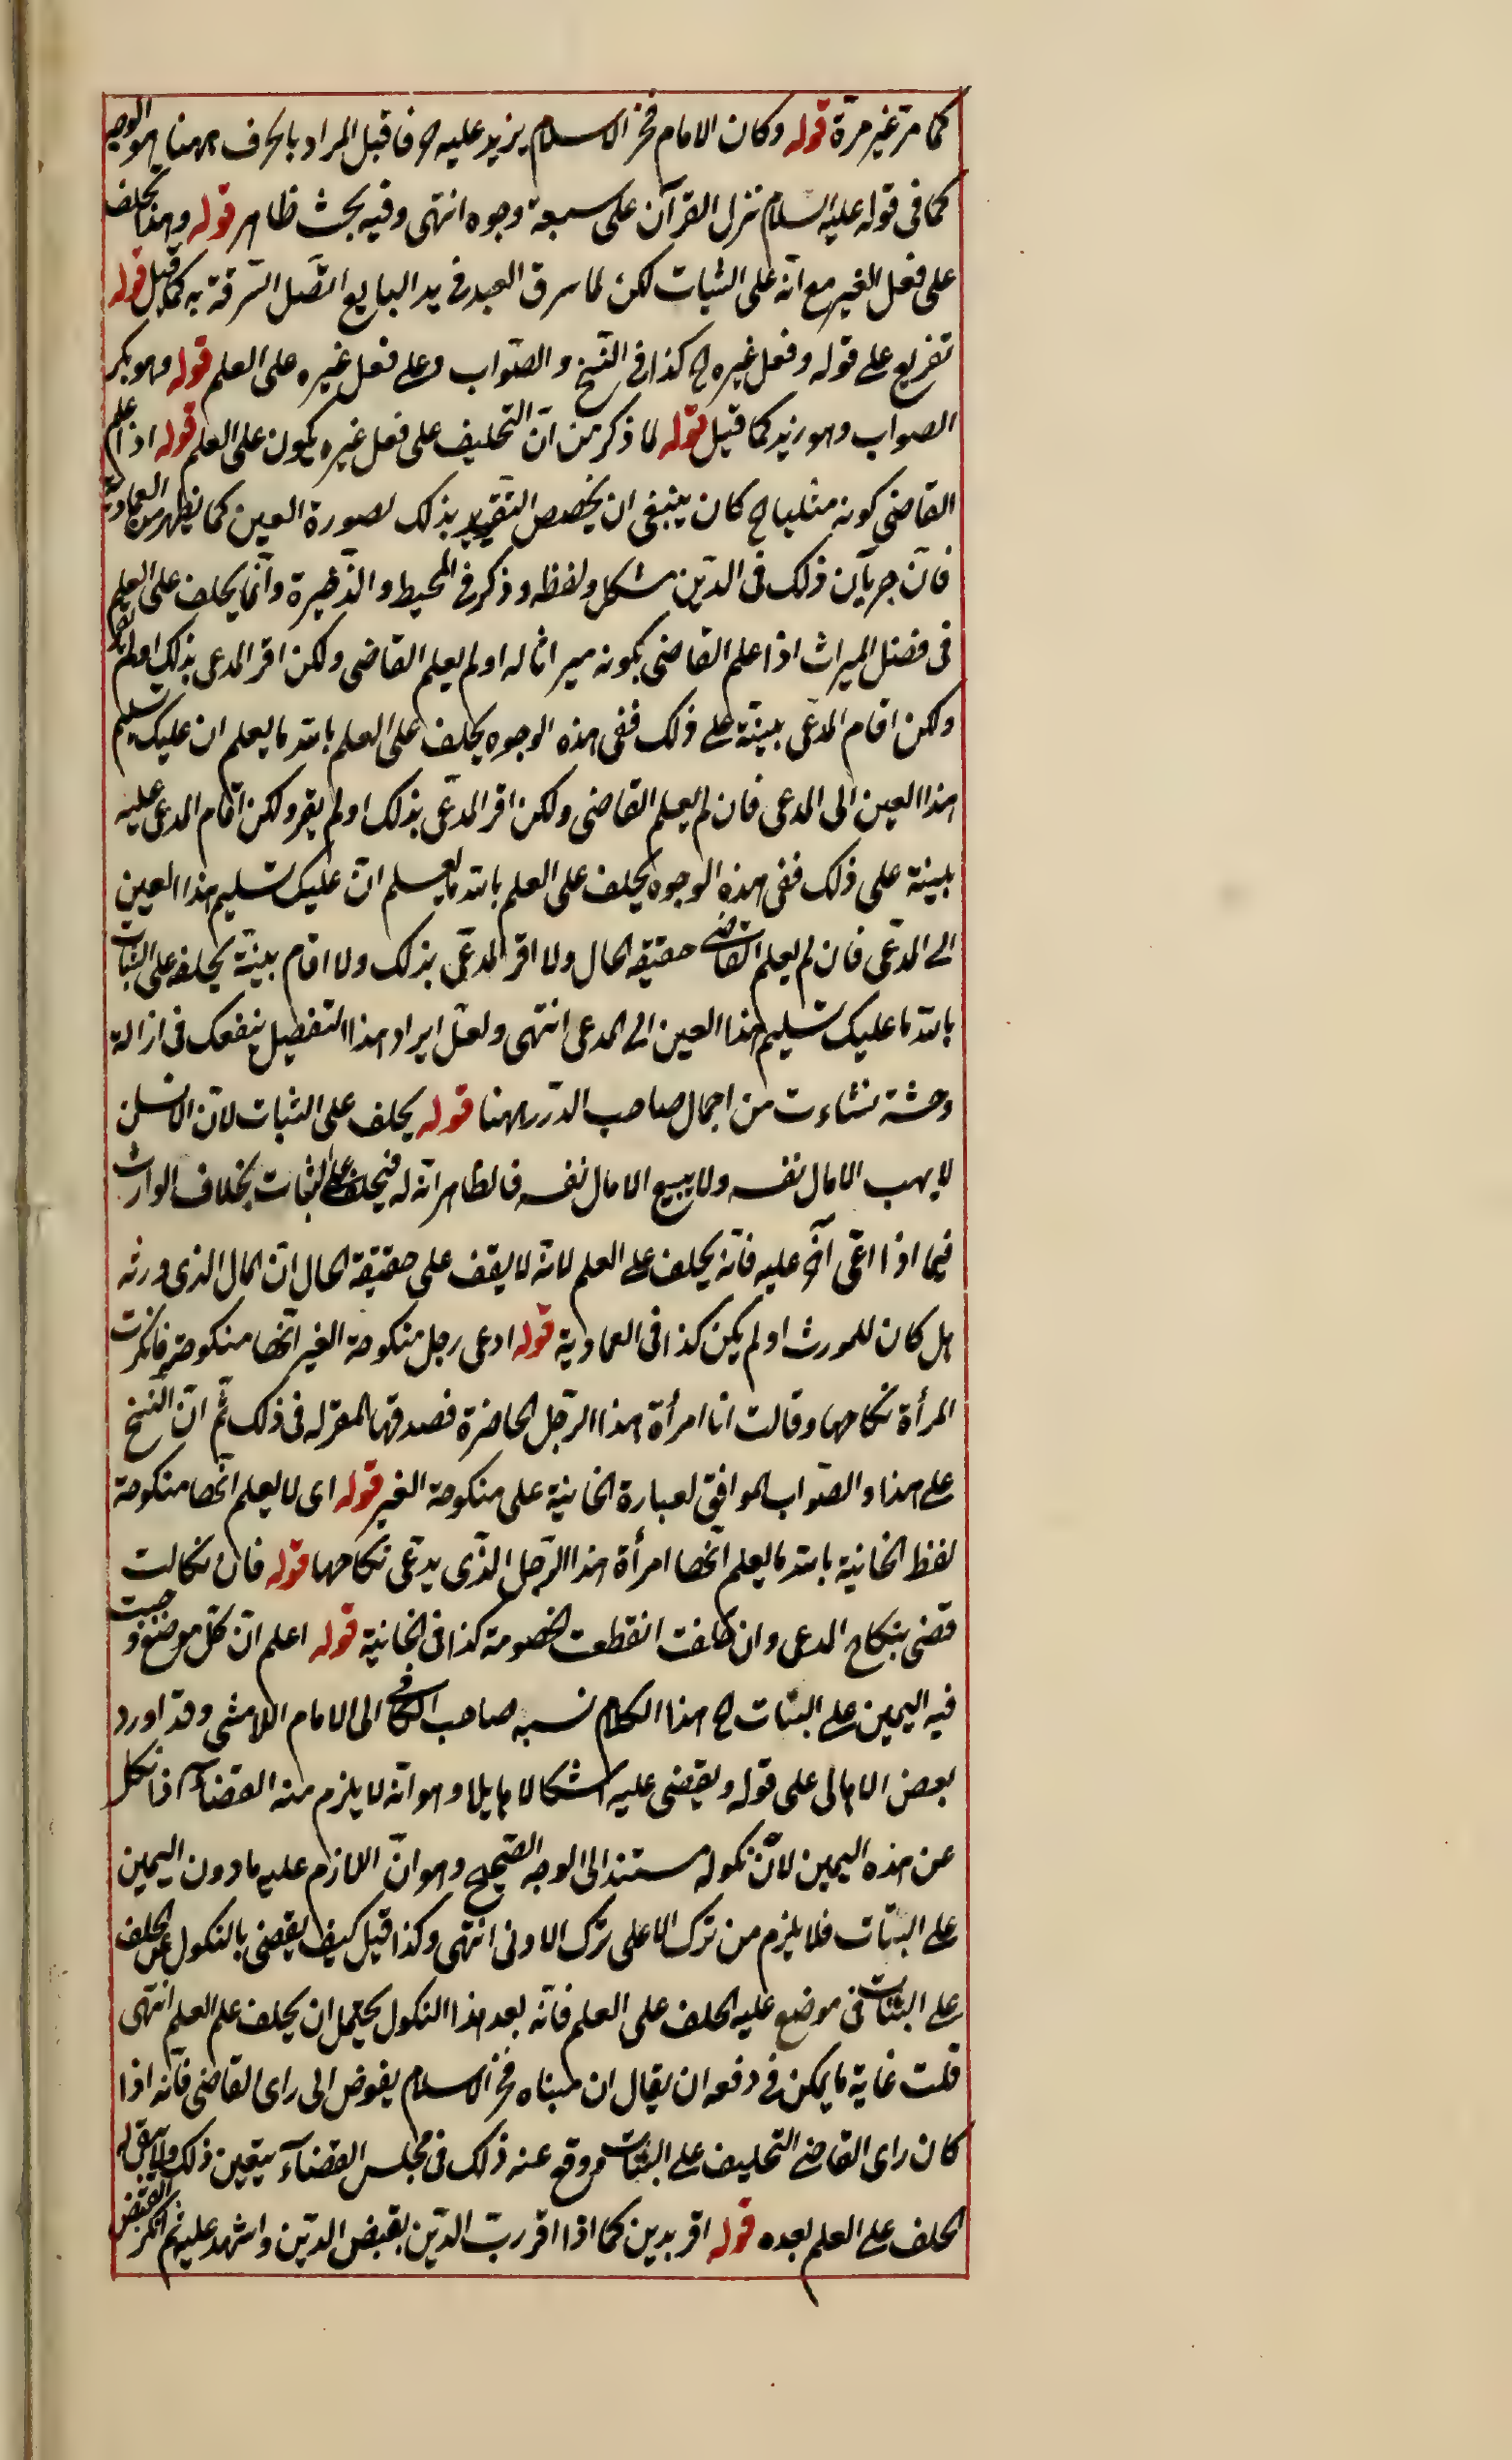 كما مرّ غير مرّة قوله وكان الامام فخر الاسلام يزيد عليه حرفا قيل المراد بالحرف ههنا هو الوجه
كما فى قوله عليه السلام نزل القرآن على سبعة وجوه انتهى وفيه بحث ظاهر قوله وهذا تحليف
على فعل الغير مع انّه على البتات لكن لما سرق العبد فى يد البايع اتّصل السّرقة به كما قيل قوله
تفريع على قوله وفعل غيره الخ كذا فى النّسخ والصّواب وعلى فعل غيره على العلم قوله وهو بكر
الصواب وهو زيد كما قيل قوله لما ذكر من انّ التحليف على فعل غيره يكون على العلم قوله اذا علم
القاضى كونه ميراثا الخ كان ينبغى ان يخصص التّقرير بذلك لصورة العين كما يظهر من العمادية
فانّ جريان ذلك فى الدّين مشكل ولفظه وذكر فى المحيط والذّخيرة وانّما يحلف على العلم
فى فصل الميراث اذا علم القاضى بكونه ميراثا له او لم يعلم القاضى ولكن اقر المدعى بذلك او لم يقر
ولكن اقام المدّعى بيّنة على ذلك ففى هذه الوجوه يحلف على العلم بالله ما يعلم ان عليك تسليم
هذا العين الى المدعى فان لم يعلم القاضى ولكن اقر المدّعى بذلك او لم يقر ولكن اقام المدعى عليه
بينة على ذلك ففى هذه الوجوه يحلف على العلم بالله ما يعلم انّ عليك تسليم هذا العين
الى المدّعى فان لم يعلم القاضى حقيقة الحال ولا اقر المدّعى بذلك ولا اقام بينّة يحلف على البتات
بالله ما عليك تسليم هذا العين الى المدعى انتهى ولعلّ ايراد هذا التفصيل ينفعك فى ازالة
وحشة نشاءت من اجمال صاحب الدّرر ههنا قوله يحلف على البتات لانّ الانسان
لا يهب الا مال نفسه ولا يبيع الا مال نفسه فالظاهر انّه له فيحلف على البتات بخلاف الوارث
فيما اذا ادّعى آخر عليه فانّه يحلف على العلم لانّه لا يقف على حقيقة الحال انّ المال الذى ورثه
هل كان للمورث او لم يكن كذا فى العمادية قوله ادعى رجل منكوحة الغير انّها منكوحته فانكرت
المرأة نكاحها وقالت انا امرأة هذا الرّجل الحاضرة فصدقها المقرّ له فى ذلك ثمّ انّ النّسخ
على هذا والصّواب الموافق لعبارة الخانية على منكوحة الغير قوله اى لا يعلم انّها منكوحة
لفظ الخانية بالله ما يعلم انّها امرأة هذا الرّجل الذّى يدّعى نكاحها قوله فان نكلت
قضى بنكاح المدعى وان حلفت انقطعت الخصومة كذا فى الخانية قوله اعلم انّ كلّ موضع وجبت
فيه اليمين على البتات الخ هذا الكلام نسبه صاحب الكافى الى الامام اللامشى وقد اورد
بعض الاهالى على قوله ويقضى عليه اشكالا هايلا وهو انّه لا يلزم منه القضآء فانكل
عن هذه اليمين لانّ نكوله مستند الى الوجه الصّحيح وهو انّ اللازم عليه ما دون اليمين
على البتّات فلا يلزم من ترك الاعلى ترك الاونى انتهى وكذا قيل كيف يقضى بالنكول عن الحلف
على البتات فى موضع عليه الحلف على العلم فانّه بعد هذا النكول يحتمل ان يحلف على العلم انتهى
قلت غاية ما يمكن فى دفعه ان يقال ان مبناه فخر الاسلام يفوض الى راى القاضى فانّه اذا
كان راى القاضى التحليف على البتات ووقع عنه ذلك فى مجلس القضآء يتعين ذلك ولا يبقى له
الحلف على العلم بعده قوله اقر بدين كما اذا اقر ربّ الدّين بقبض الدّين واشهد عليه ثم انكر القبض